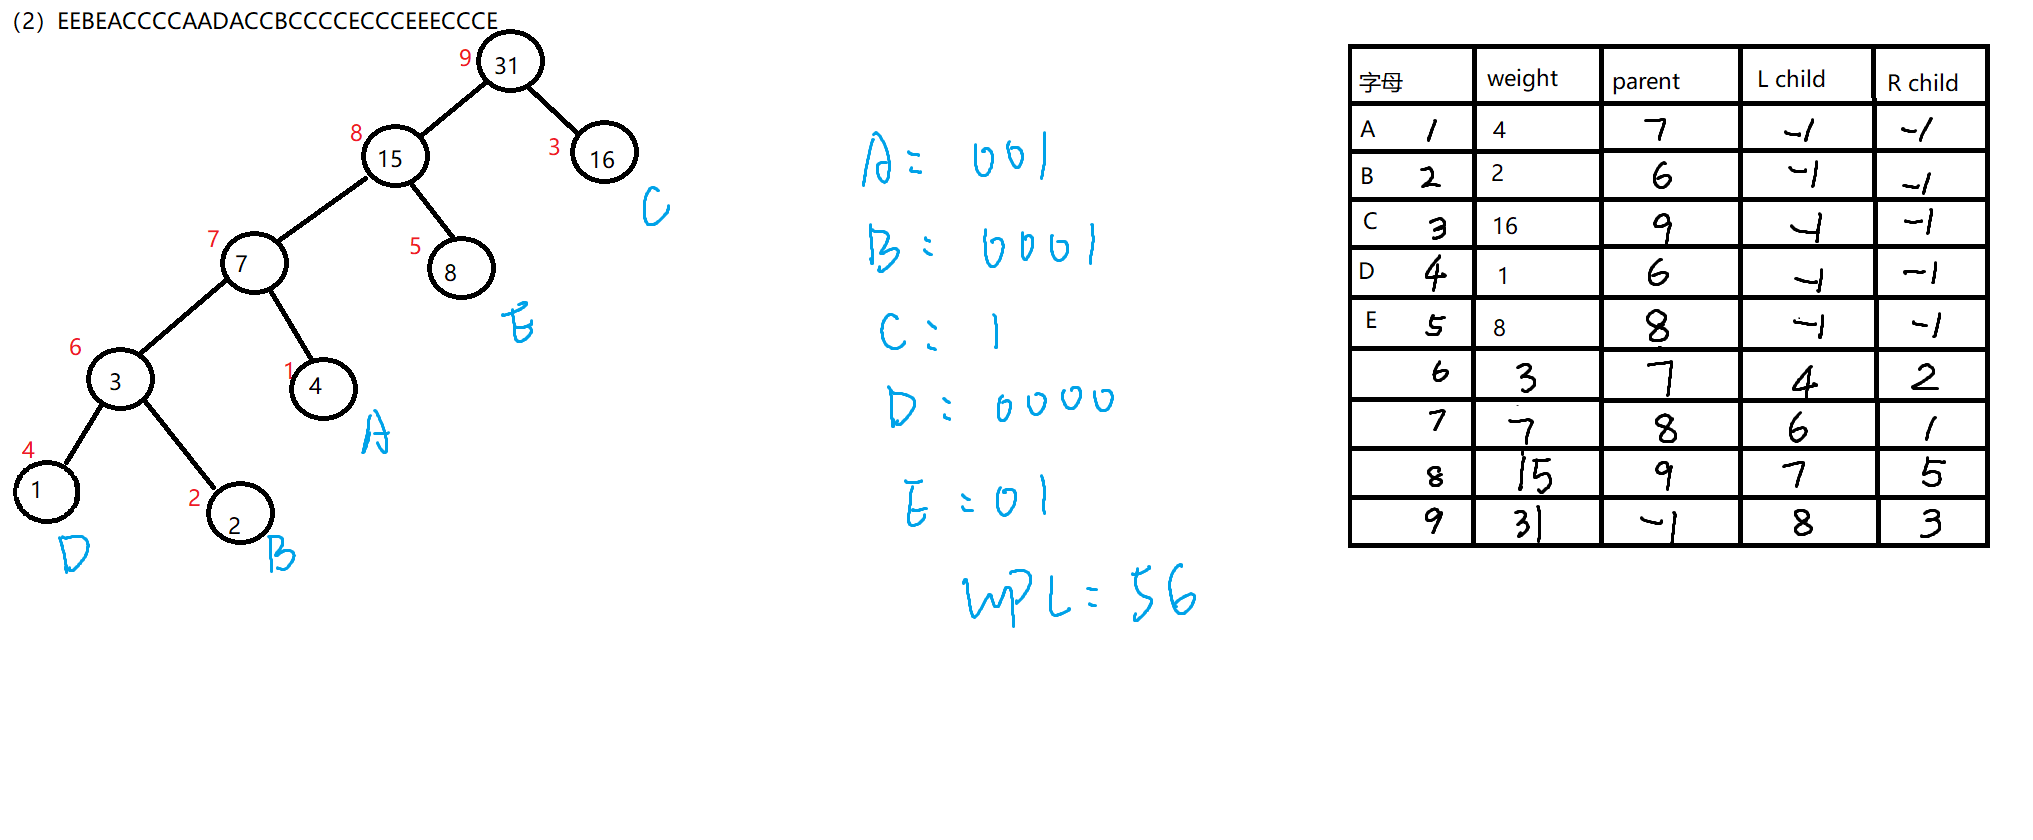 (2) EEBEACCCCAADACCBCCCCECCCEEECCCE
9 31
8 15
3 16
C
7 7
5 8
E
6 3
1 4
A
4 1
D
2 2
B
A: 001
B: 0001
C: 1
D: 0000
E = 01
WPL = 56
字母 weight parent L child R child
A 1 4 7 -1 -1
B 2 2 6 -1 -1
C 3 16 9 -1 -1
D 4 1 6 -1 -1
E 5 8 8 -1 -1
6 3 7 4 2
7 7 8 6 1
8 15 9 7 5
9 31 -1 8 3